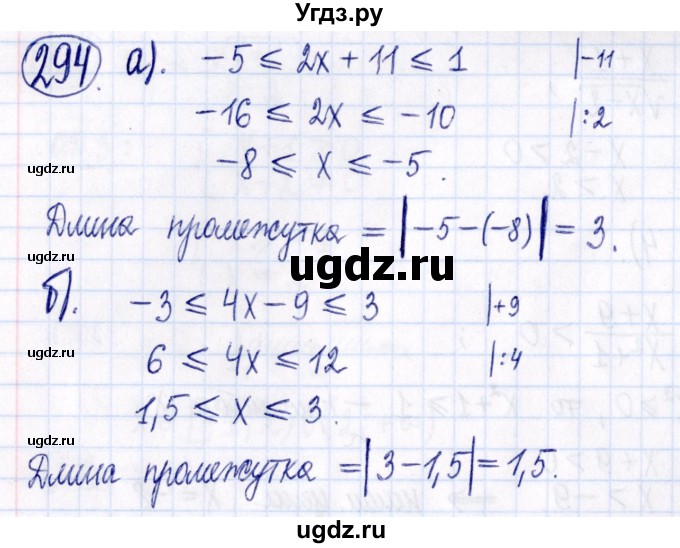 Угдз.ру
294. а). −5 ≤ 2x + 11 ≤ 1 |−11
−16 ≤ 2x ≤ −10 |:2
−8 ≤ x ≤ −5.
Длина промежутка = |−5−(−8)| = 3.
б). −3 ≤ 4x − 9 ≤ 3 |+9
6 ≤ 4x ≤ 12 |:4
1,5 ≤ x ≤ 3.
Длина промежутка = |3−1,5| = 1,5.
ugdz.ru
ugdz.ru
ugdz.ru
ugdz.ru
ugdz.ru
ugdz.ru
ugdz.ru
ugdz.ru
ugdz.ru
ugdz.ru